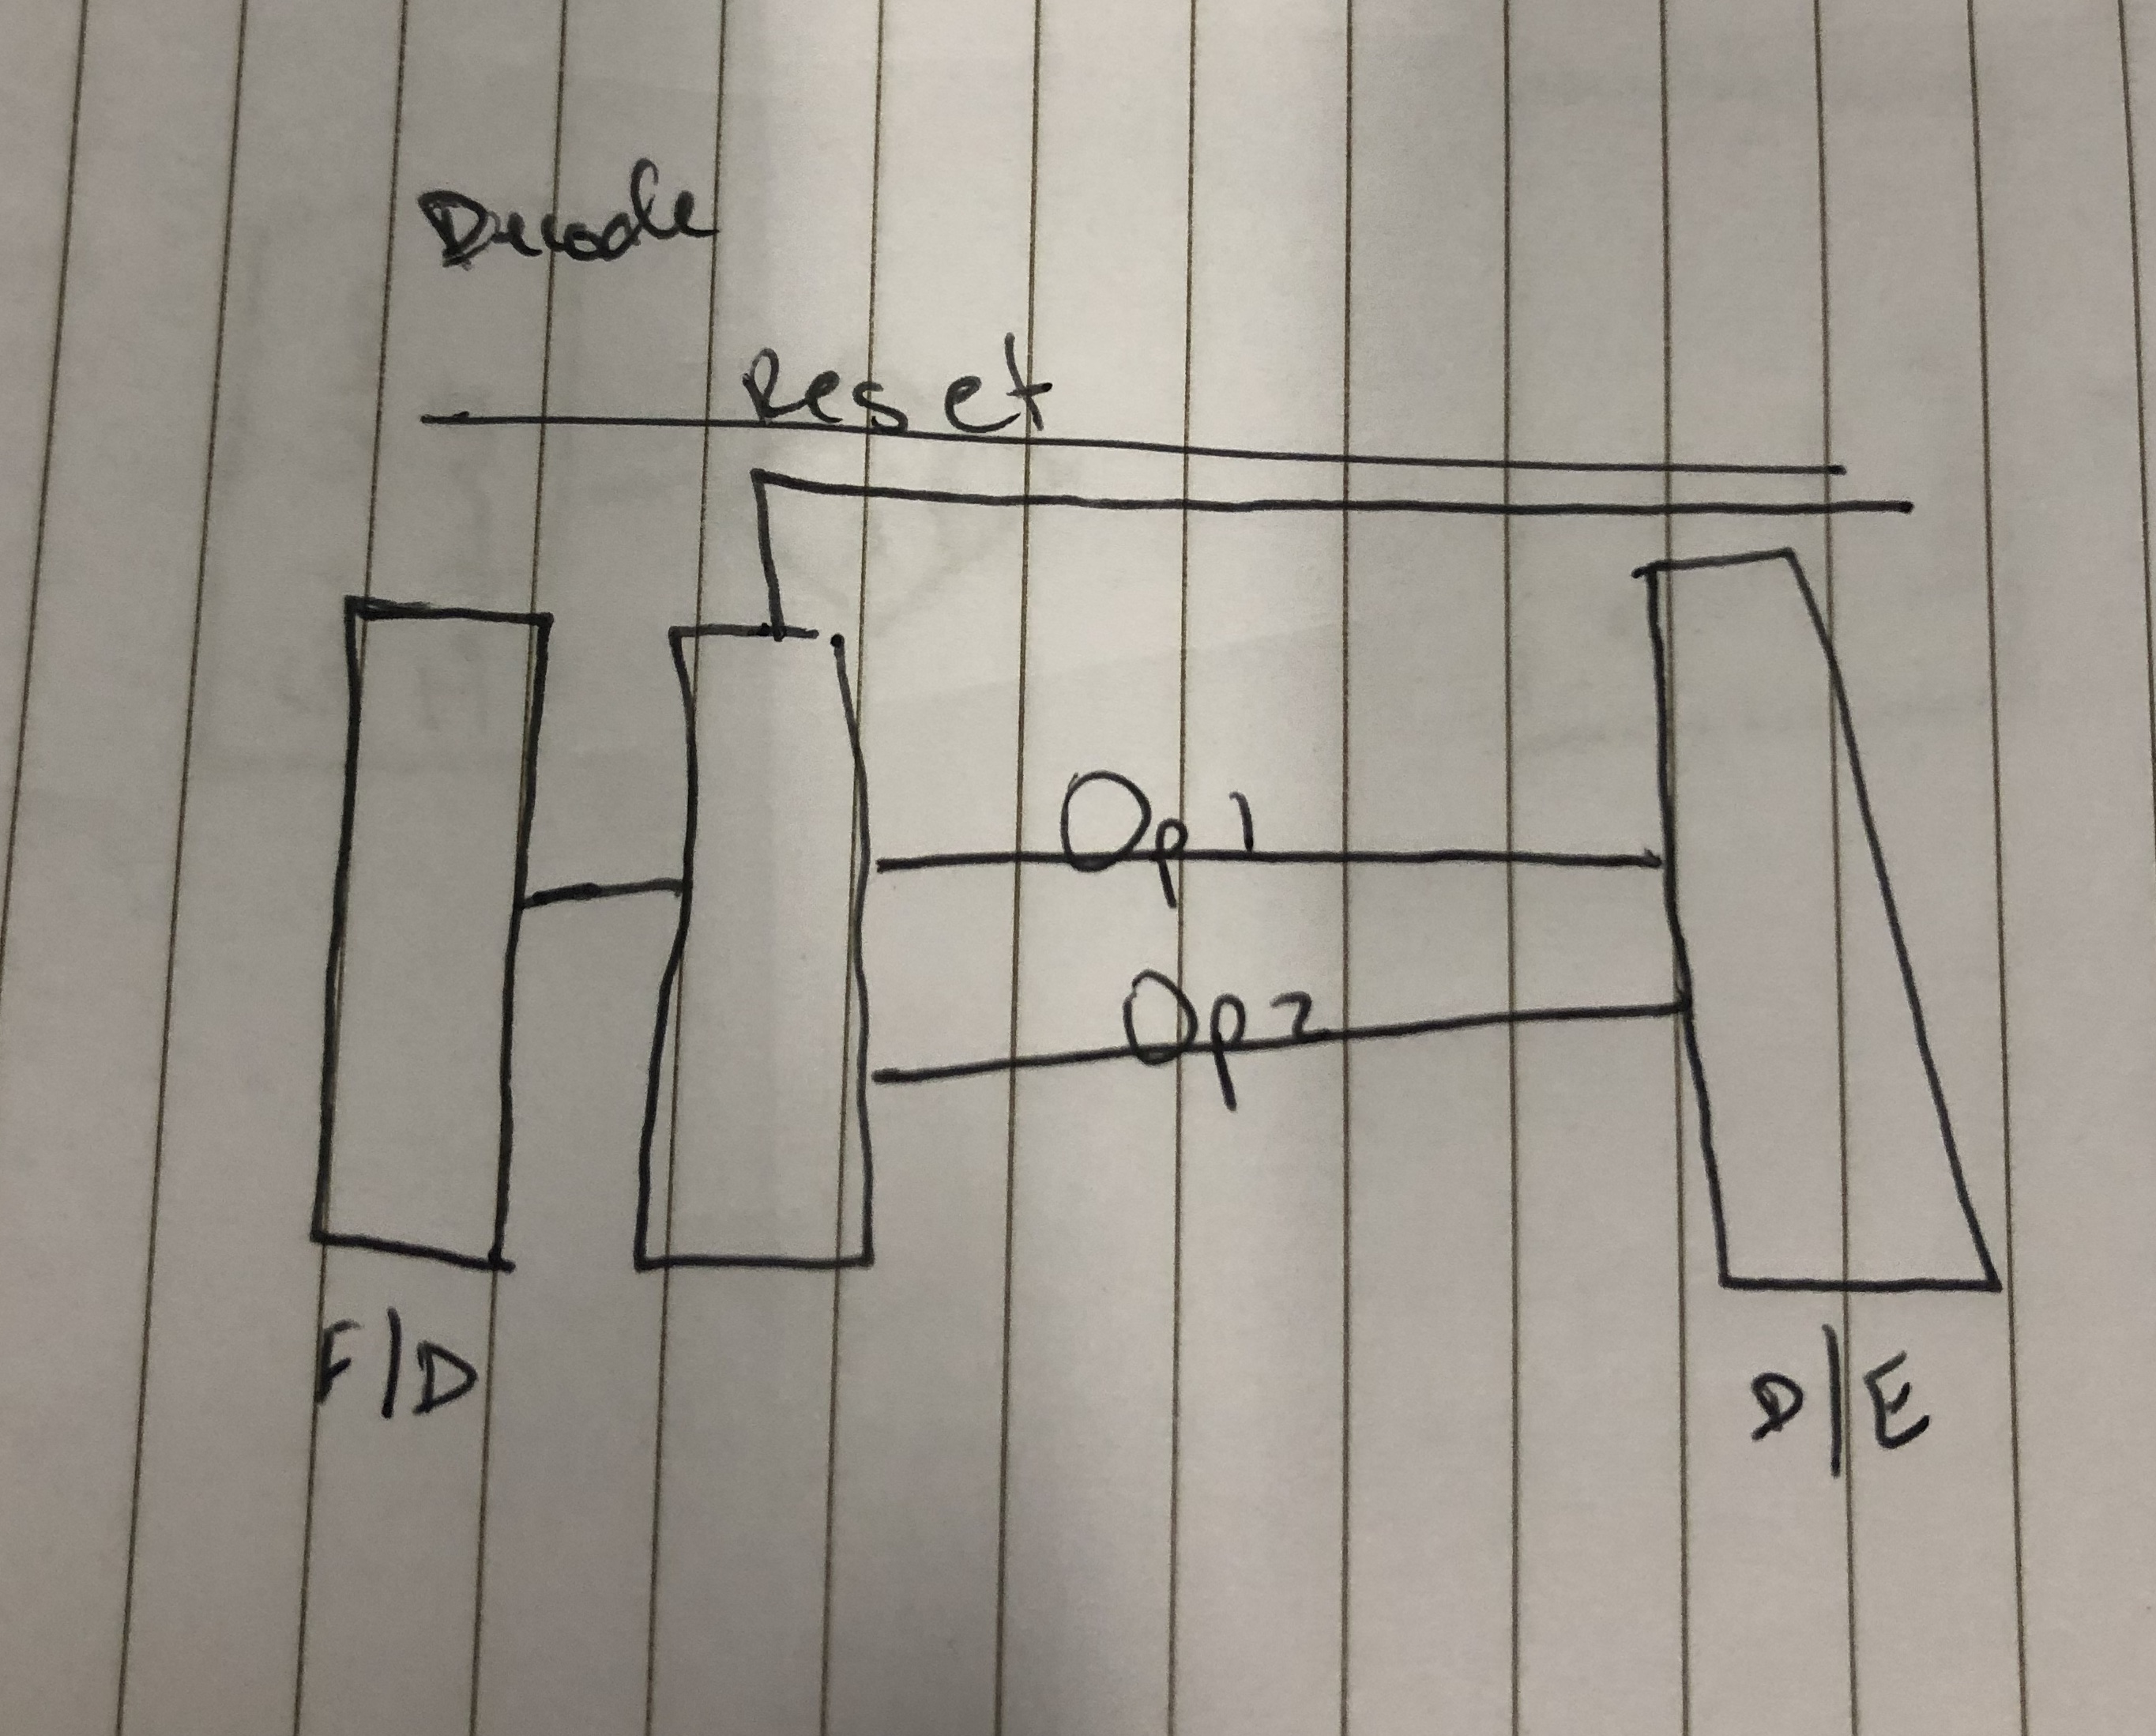 Decode
Reset
Op 1
Op 2
F/D
D/E